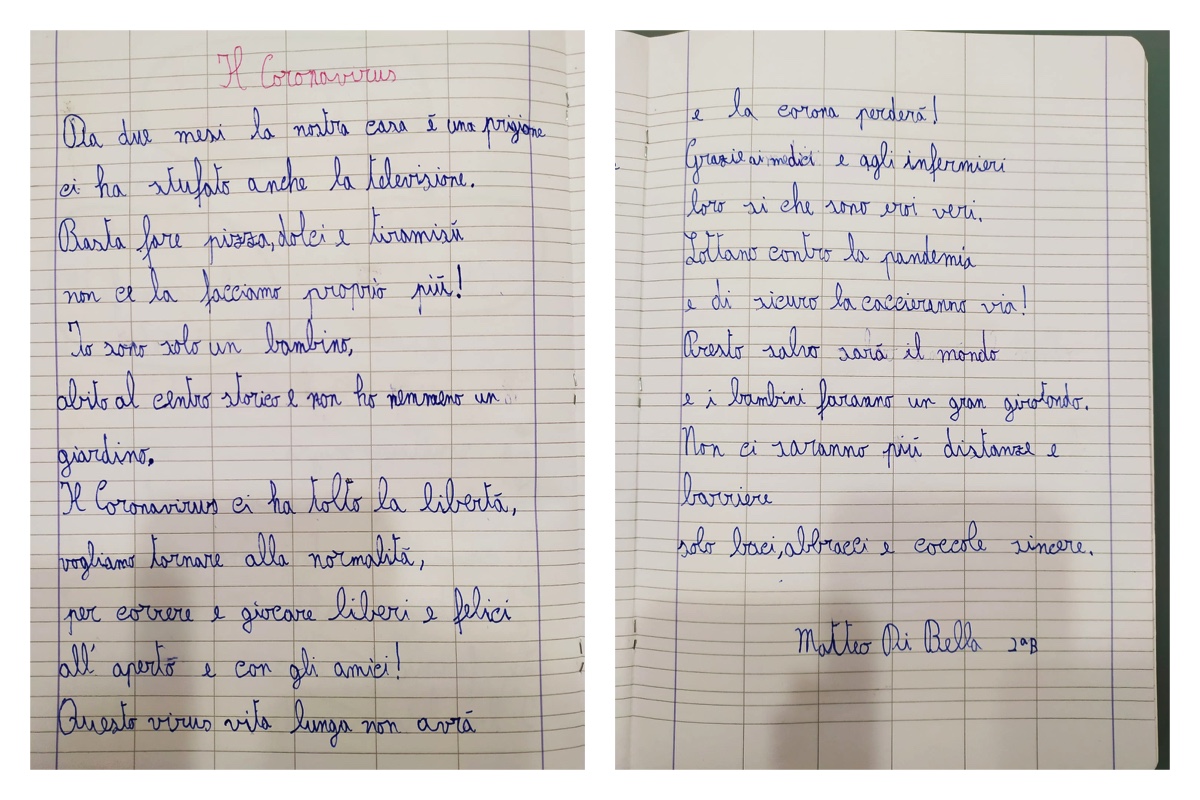 Il Coronavirus
Da due mesi la nostra casa è una prigione
ci ha stufato anche la televisione.
Basta fare pizza, dolci e tiramisù
non ce la facciamo proprio più!
Io sono solo un bambino,
abito al centro storico e non ho nemmeno un
giardino.
Il Coronavirus ci ha tolto la libertà,
vogliamo tornare alla normalità,
per correre e giocare liberi e felici
all' aperto e con gli amici!
Questo virus vita lunga non avrà
e la corona perderà!
Grazie ai medici e agli infermieri
loro si che sono eroi veri.
Lottano contro la pandemia
e di sicuro la caccieranno via!
Presto salvo sarà il mondo
e i bambini faranno un gran girotondo.
Non ci saranno più distanze e
barriere
solo baci, abbracci e coccole sincere.
Matteo Di Bella 2ªB